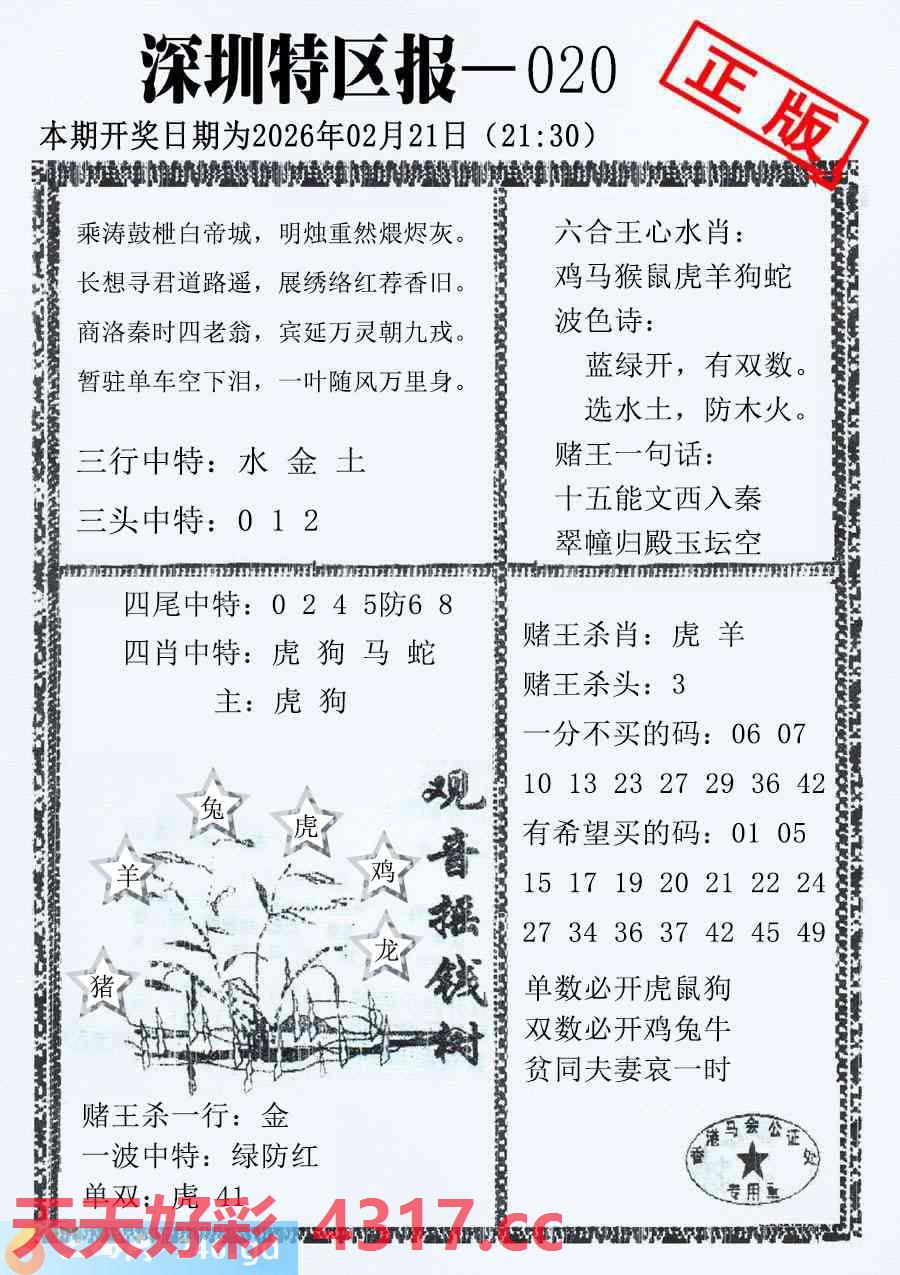 深圳特区报—020
正版
本期开奖日期为2026年02月21日（21:30）
乘涛鼓枻白帝城，明烛重然煨烬灰。
长想寻君道路遥，展绣络红荐香旧。
商洛秦时四老翁，宾延万灵朝九戎。
暂驻单车空下泪，一叶随风万里身。
三行中特：水 金 土
三头中特：0 1 2
六合王心水肖：
鸡马猴鼠虎羊狗蛇
波色诗：
蓝绿开，有双数。
选水土，防木火。
赌王一句话：
十五能文西入秦
翠幢归殿玉坛空
四尾中特：0 2 4 5防6 8
四肖中特：虎 狗 马 蛇
主：虎 狗
兔
虎
羊
鸡
龙
猪
观音摇钱树
赌王杀一行：金
一波中特：绿防红
单双：虎 41
赌王杀肖：虎 羊
赌王杀头：3
一分不买的码：06 07
10 13 23 27 29 36 42
有希望买的码：01 05
15 17 19 20 21 22 24
27 34 36 37 42 45 49
单数必开虎鼠狗
双数必开鸡兔牛
贫同夫妻哀一时
香港马会公证处
专用章
天天好彩 4317.cc